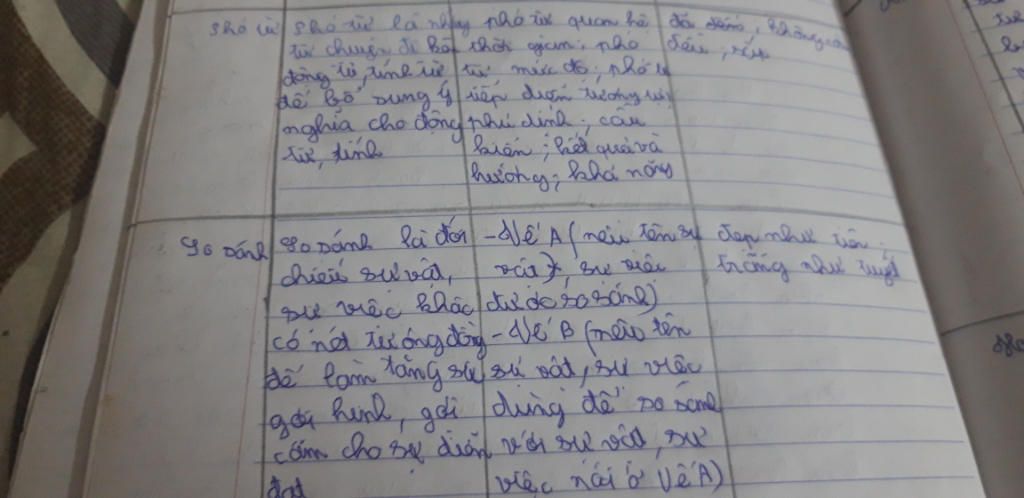 Phó từ
Phó từ là những
từ chuyên đi kèm
động từ, tính từ
để bổ sung ý
nghĩa cho động
từ, tính
phó từ quan hệ
thời gian; phó
từ mức độ; phó từ
tiếp diễn tương tự
phủ định; cầu
kiến; kết quả và
hướng; khả năng
đã đang, không
đều, rất
So sánh
So sánh là đối
chiếu sự vật,
sự việc khác
có nét tương đồng
để làm tăng sự
gợi hình, gợi
cảm cho sự diễn
đạt
- Vế A (nêu tên sự
vật, sự việc
được so sánh)
- Vế B (nêu tên
sự vật, sự việc
dùng để so sánh
với sự vật, sự
việc nói ở Vế A)
đẹp như tiên
trắng như tuyết